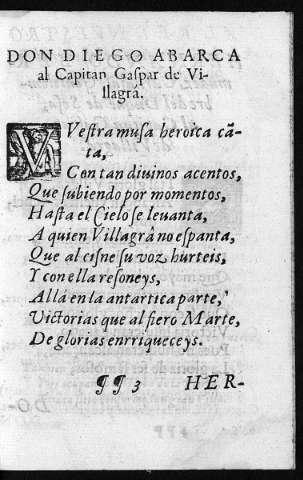 DON DIEGO ABARCA
al Capitan Gaſpar de Vi-
llagrá.
VVeſtra muſa heroica cã
ta,
Con tan diuinos acentos,
Que ſubiendo por momentos,
Haſta el Cielo ſe leuanta,
A quien Villagrà no eſpanta,
Que al ciſne ſu voz hurteis,
Y con ella reſoneys,
Allá en la antartica parte,
Victorias que al fiero Marte,
De glorias enrriqueceys.
¶¶3 HER-